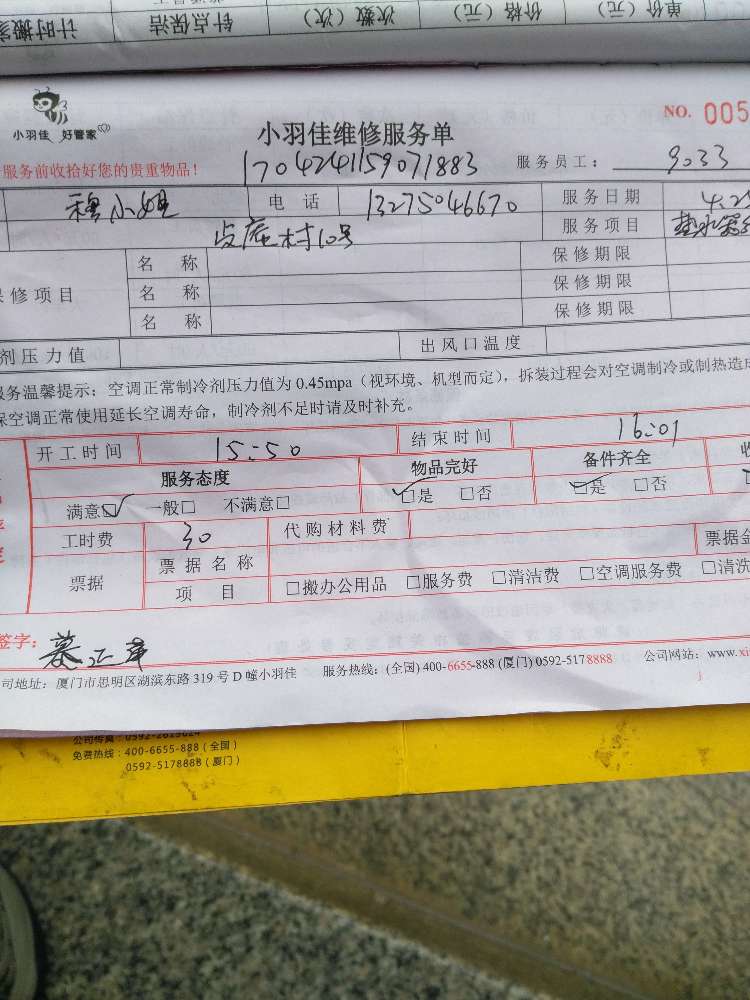 计时搬家 针点保洁 次数（次） 价格（元） 单价（元）
小羽佳 好管家
小羽佳维修服务单
NO. 005
服务前收拾好您的贵重物品！
1704241159071883
服务员工： 9033
穆小姐 电话 13275046670 服务日期 4.25
村10号 服务项目
保修项目 名称 保修期限
名称 保修期限
名称 保修期限
剂压力值 出风口温度
服务温馨提示：空调正常制冷剂压力值为0.45mpa（视环境、机型而定），拆装过程会对空调制冷或制热造成
保空调正常使用延长空调寿命，制冷剂不足时请及时补充。
开工时间 15:50 结束时间 16:01
服务态度 物品完好 备件齐全 收
满意☑ 一般□ 不满意□ ☑是 □否 ☑是 □否
工时费 30 代购材料费
票据 票据名称 票据金
项目 □搬办公用品 □服务费 □清洁费 □空调服务费 □清洗
签字：
司地址：厦门市思明区湖滨东路319号D幢小羽佳 服务热线：(全国) 400-6655-888 (厦门) 0592-5178888 公司网站：www.xi
公司传真：0592-2615624
免费热线：400-6655-888（全国）
0592-5178888（厦门）